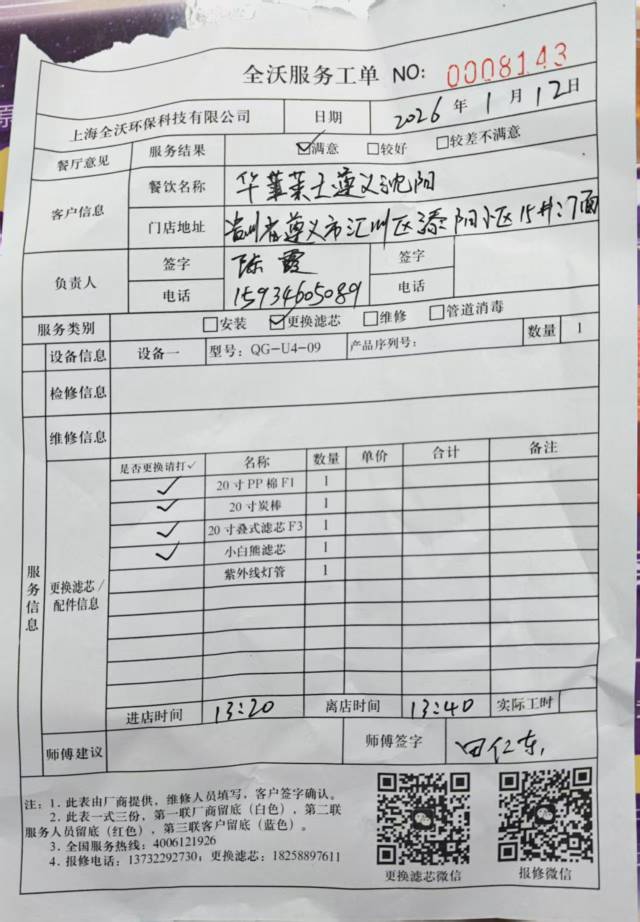 全沃服务工单 NO: 0008143
上海全沃环保科技有限公司 日期 2026 年 1 月 12 日
餐厅意见 服务结果 ☑满意 □较好 □较差不满意
客户信息 餐饮名称 华莱士遵义沈阳
门店地址 贵州省遵义市汇川区 阳小区15栋门面
负责人 签字 陈霞 签字
电话 15934605089 电话
服务类别 □安装 ☑更换滤芯 □维修 □管道消毒
设备信息 设备一 型号: QG-U4-09 产品序列号: 数量 1
检修信息
维修信息
服务信息
更换滤芯/配件信息
是否更换请打✓ 名称 数量 单价 合计 备注
✓ 20寸PP棉F1 1
✓ 20寸炭棒 1
✓ 20寸叠式滤芯F3 1
✓ 小白熊滤芯 1
紫外线灯管 1
进店时间 13:20 离店时间 13:40 实际工时
师傅建议 师傅签字 田仁东
注: 1. 此表由厂商提供，维修人员填写，客户签字确认。
2. 此表一式三份，第一联厂商留底（白色），第二联
服务人员留底（红色），第三联客户留底（蓝色）。
3. 全国服务热线: 4006121926
4. 报修电话: 13732292730; 更换滤芯: 18258897611
更换滤芯微信 报修微信